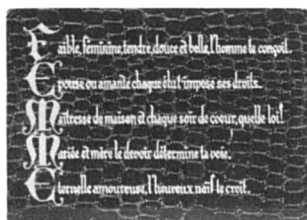 Faible, féminine, tendre, douce et belle, l'homme te conçoit.
Epouse ou amante chaque état impose ses droits.
Maîtresse de maison et chaque soir de coeur, quelle loi!
Mariée et mère le devoir détermine ta voie.
Eternelle amoureuse, l'heureux naïf te croit.